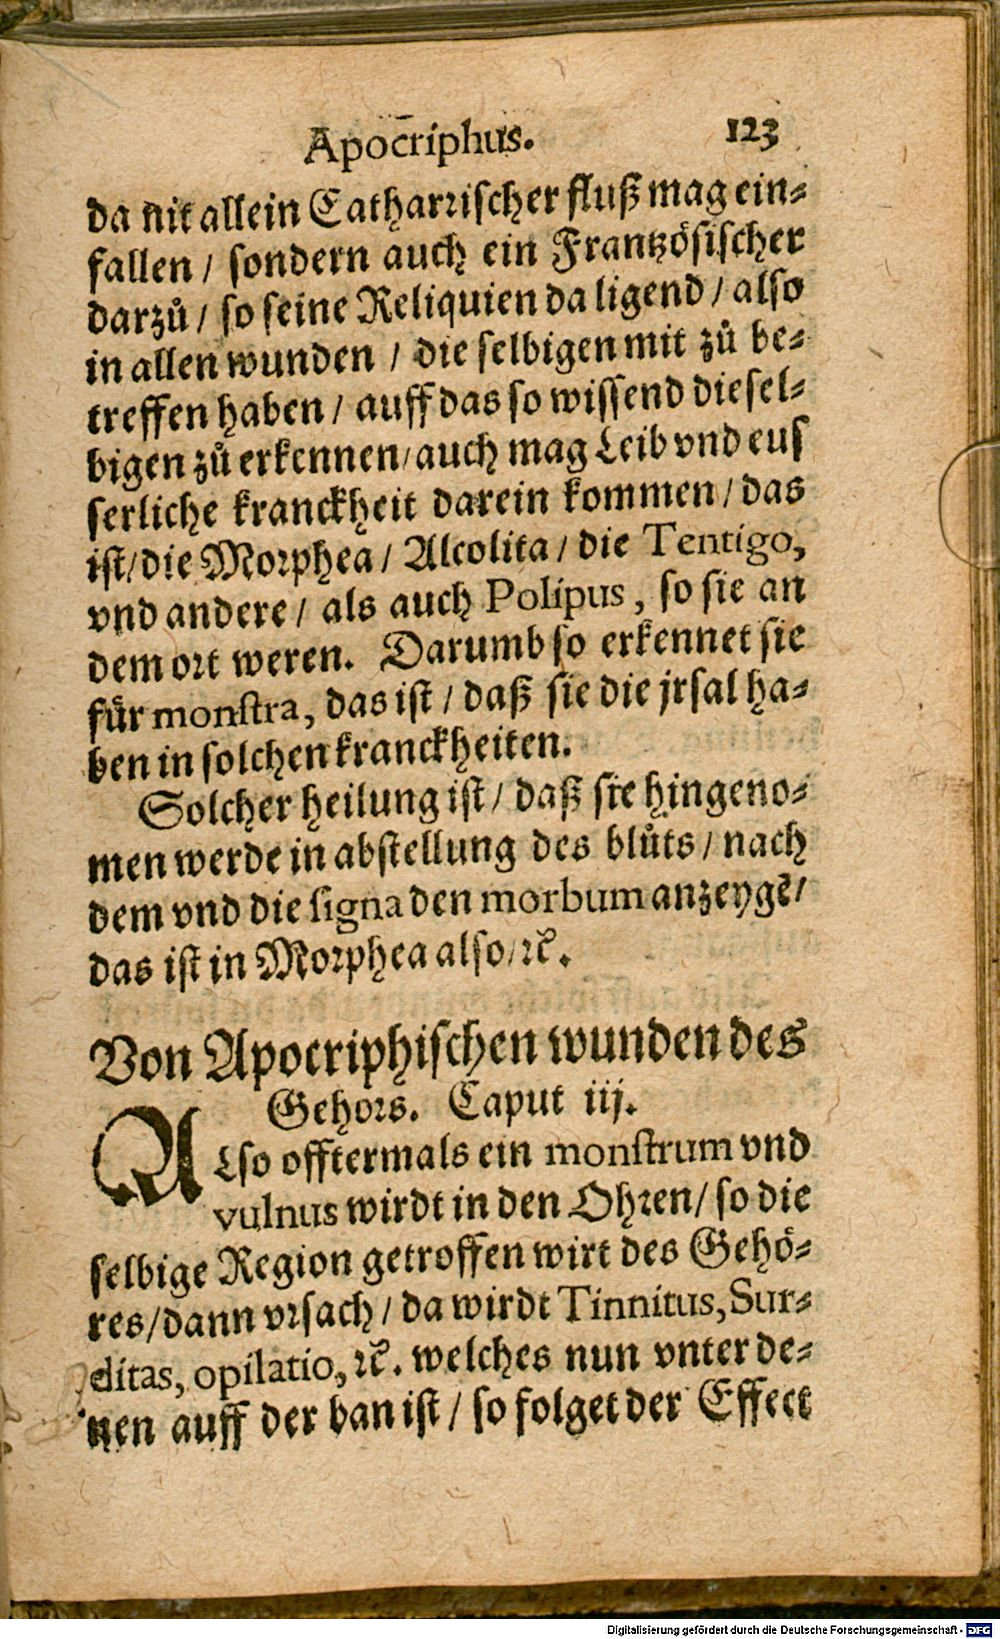 Apocriphus. 123
da nit allein Catharrischer fluß mag ein⸗
fallen / sondern auch ein Frantzösischer
darzů / so seine Reliquien da ligend / also
in allen wunden / die selbigen mit zů be⸗
treffen haben / auff das so wissend diesel⸗
bigen zů erkennen / auch mag Leib vnd eus
serliche kranckheit darein kommen / das
ist / die Morphea / Alcolita / die Tentigo,
vnd andere / als auch Polipus, so sie an
dem ort weren. Darumb so erkennet sie
fůr monstra, das ist / daß sie die jrsal ha⸗
ben in solchen kranckheiten.
Solcher heilung ist / daß sie hingeno⸗
men werde in abstellung des blůts / nach
dem vnd die signa den morbum anzeygẽ /
das ist in Morphea also / ꝛc̃.
Von Apocriphischen wunden des
Gehors. Caput iij.
ALso offtermals ein monstrum vnd
vulnus wirdt in den Ohren / so die
selbige Region getroffen wirt des Gehö⸗
res / dann vrsach / da wirdt Tinnitus, Sur⸗
ditas, opilatio, ꝛc̃. welches nun vnter de⸗
nen auff der ban ist / so folget der Effect
Digitalisierung gefördert durch die Deutsche Forschungsgemeinschaft - DFG